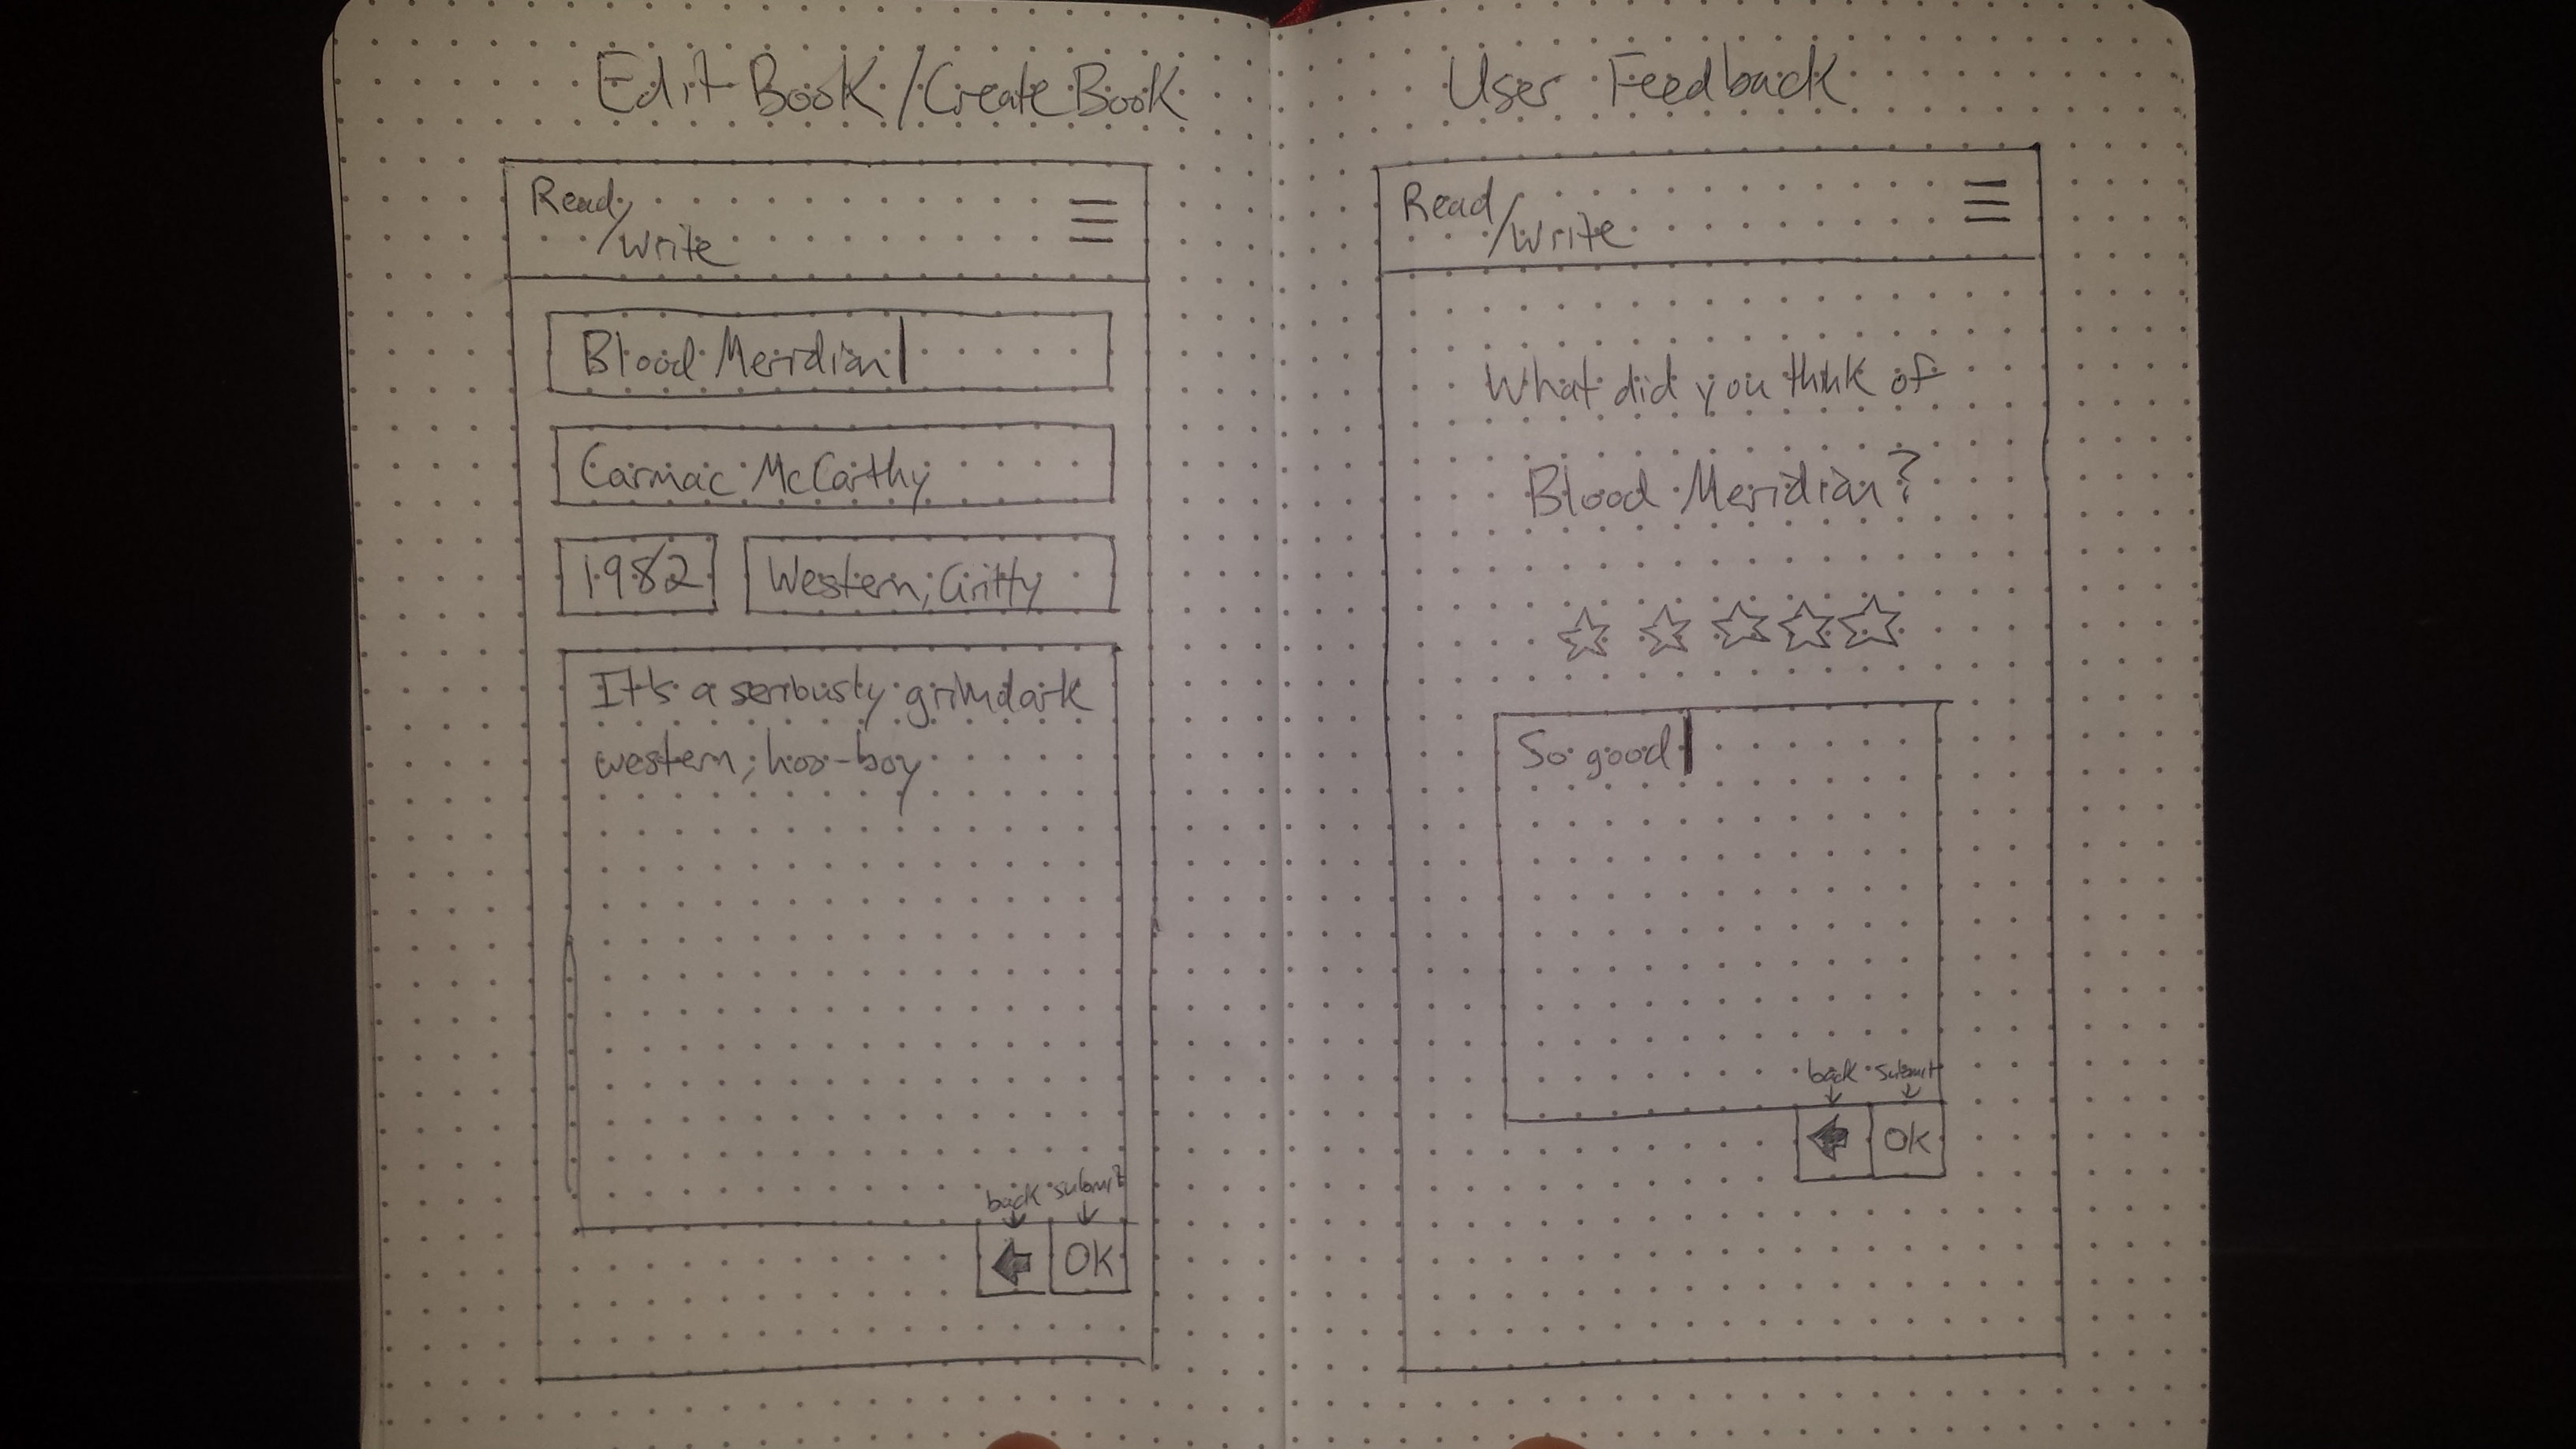 Edit Book/Create Book
Read
/Write
Blood Meridian
Carmac McCarthy
1982
Western, Gritty
It's a seriously grimdark
western, hoo-boy
back submit
OK
User Feedback
Read
/Write
What did you think of
Blood Meridian?
So good
back submit
OK